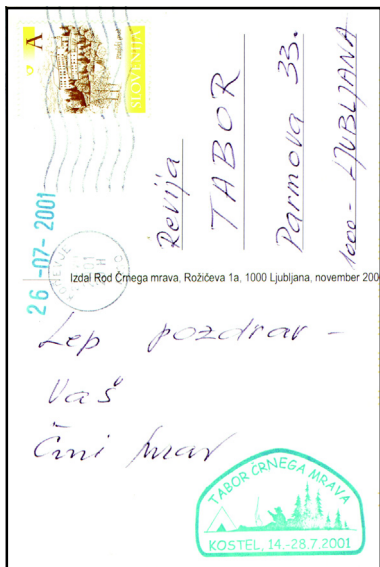 A
SLOVENIJA
26 -07- 2001
Revija
TABOR
Parmova 33.
1000 - LJUBLJANA
Izdal Rod Črnega mrava, Rožičeva 1a, 1000 Ljubljana, november 200
Lep pozdrav -
Vaš
Črni mrav
TABOR ČRNEGA MRAVA
KOSTEL, 14.-28.7.2001